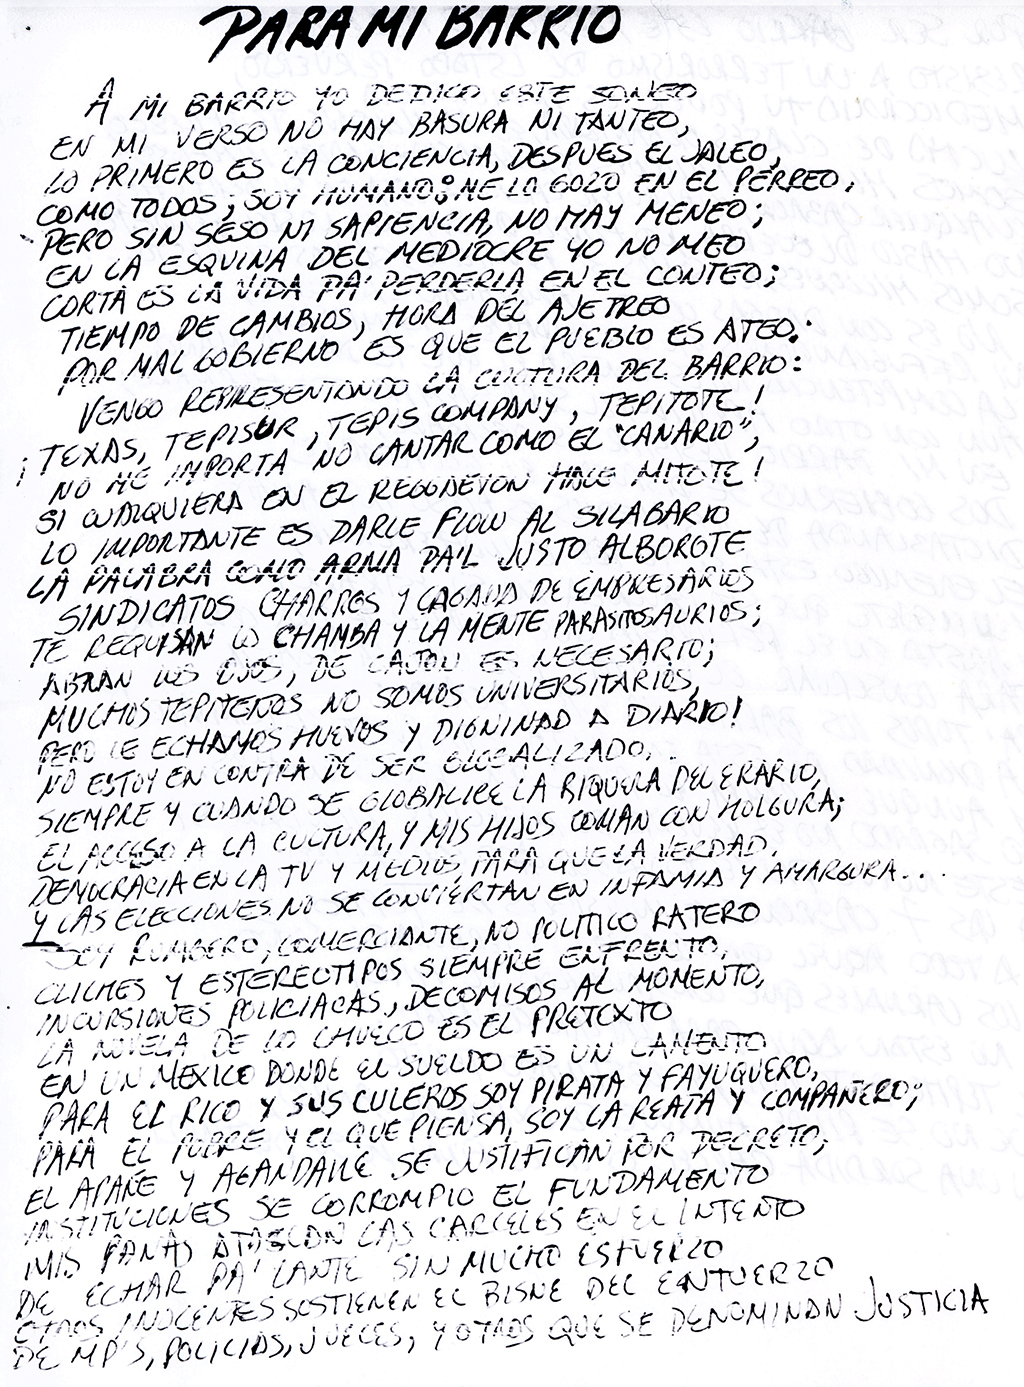 PARA MI BARRIO
A MI BARRIO YO DEDICO ESTE SONEO
EN MI VERSO NO HAY BASURA NI TANTEO,
LO PRIMERO ES LA CONCIENCIA, DESPUES EL JALEO,
COMO TODOS; SOY HUMANO: ME LO GOZO EN EL PERREO,
PERO SIN SESO NI SAPIENCIA, NO HAY MENEO;
EN LA ESQUINA DEL MEDIOCRE YO NO MEO
CORTA ES LA VIDA PA' PERDERLA EN EL CONTEO;
TIEMPO DE CAMBIOS, HORA DEL AJETREO
POR MAL GOBIERNO ES QUE EL PUEBLO ES ATEO.
VENGO REPRESENTANDO LA CULTURA DEL BARRIO:
¡TEXAS, TEPISUR, TEPIS COMPANY, TEPITOTE!
NO ME IMPORTA NO CANTAR COMO EL "CANARIO",
SI CUALQUIERA EN EL REGGAETON HACE MITOTE!
LO IMPORTANTE ES DARLE FLOW AL SILABARIO
LA PALABRA COMO ARMA PA'L JUSTO ALBOROTE
SINDICATOS CHARROS Y CAGADA DE EMPRESARIOS
TE REQUISAN LA CHAMBA Y LA MENTE PARASITOSAURIOS;
ABRAN LOS OJOS, DE CAJON ES NECESARIO;
MUCHOS TEPITEÑOS NO SOMOS UNIVERSITARIOS,
PERO LE ECHAMOS HUEVOS Y DIGNIDAD A DIARIO!
NO ESTOY EN CONTRA DE SER GLOBALIZADO,
SIEMPRE Y CUANDO SE GLOBALICE LA RIQUEZA DEL ERARIO,
EL ACCESO A LA CULTURA, Y MIS HIJOS COMAN CON HOLGURA;
DEMOCRACIA EN LA TV Y MEDIOS, PARA QUE LA VERDAD,
Y LAS ELECCIONES NO SE CONVIERTAN EN INFAMIA Y AMARGURA...
SOY RUMBERO, COMERCIANTE, NO POLITICO RATERO
CLICHES Y ESTEREOTIPOS SIEMPRE ENFRENTO,
INCURSIONES POLICIACAS, DECOMISOS AL MOMENTO,
LA NOVELA DE LO CHUECO ES EL PRETEXTO
EN UN MEXICO DONDE EL SUELDO ES UN LAMENTO
PARA EL RICO Y SUS CULEROS SOY PIRATA Y FAYUQUERO,
PARA EL POBRE Y EL QUE PIENSA, SOY LA REATA Y COMPAÑERO;
EL APAÑE Y AGANDALLE SE JUSTIFICAN POR DECRETO;
INSTITUCIONES SE CORROMPIO EL FUNDAMENTO
MIS PANAS ATASCAN LAS CARCELES EN EL INTENTO
DE ECHAR PA' LANTE SIN MUCHO ESFUERZO
OTROS INOCENTES SOSTIENEN EL BISNE DEL ENTUERZO
DE MP'S, POLICIAS, JUECES, Y OTROS QUE SE DENOMINAN JUSTICIA